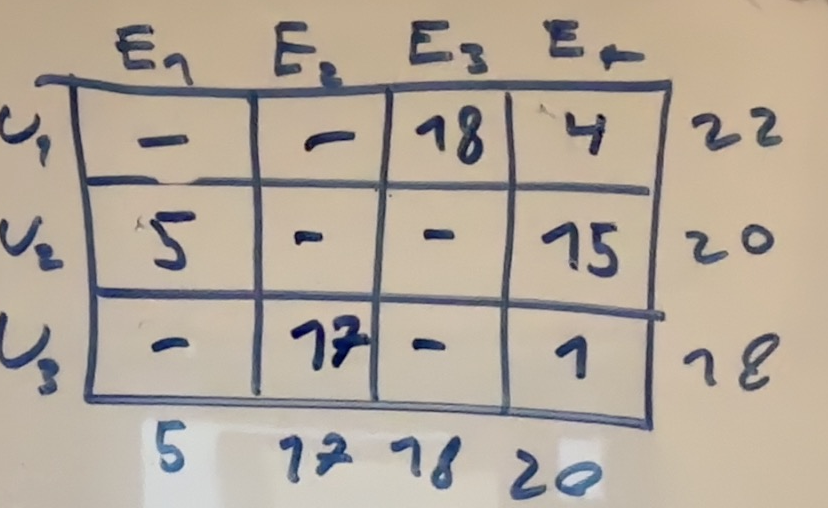 E1 E2 E3 E4
U1 - - 18 4 22
U2 5 - - 15 20
U3 - 17 - 1 18
5 17 18 20